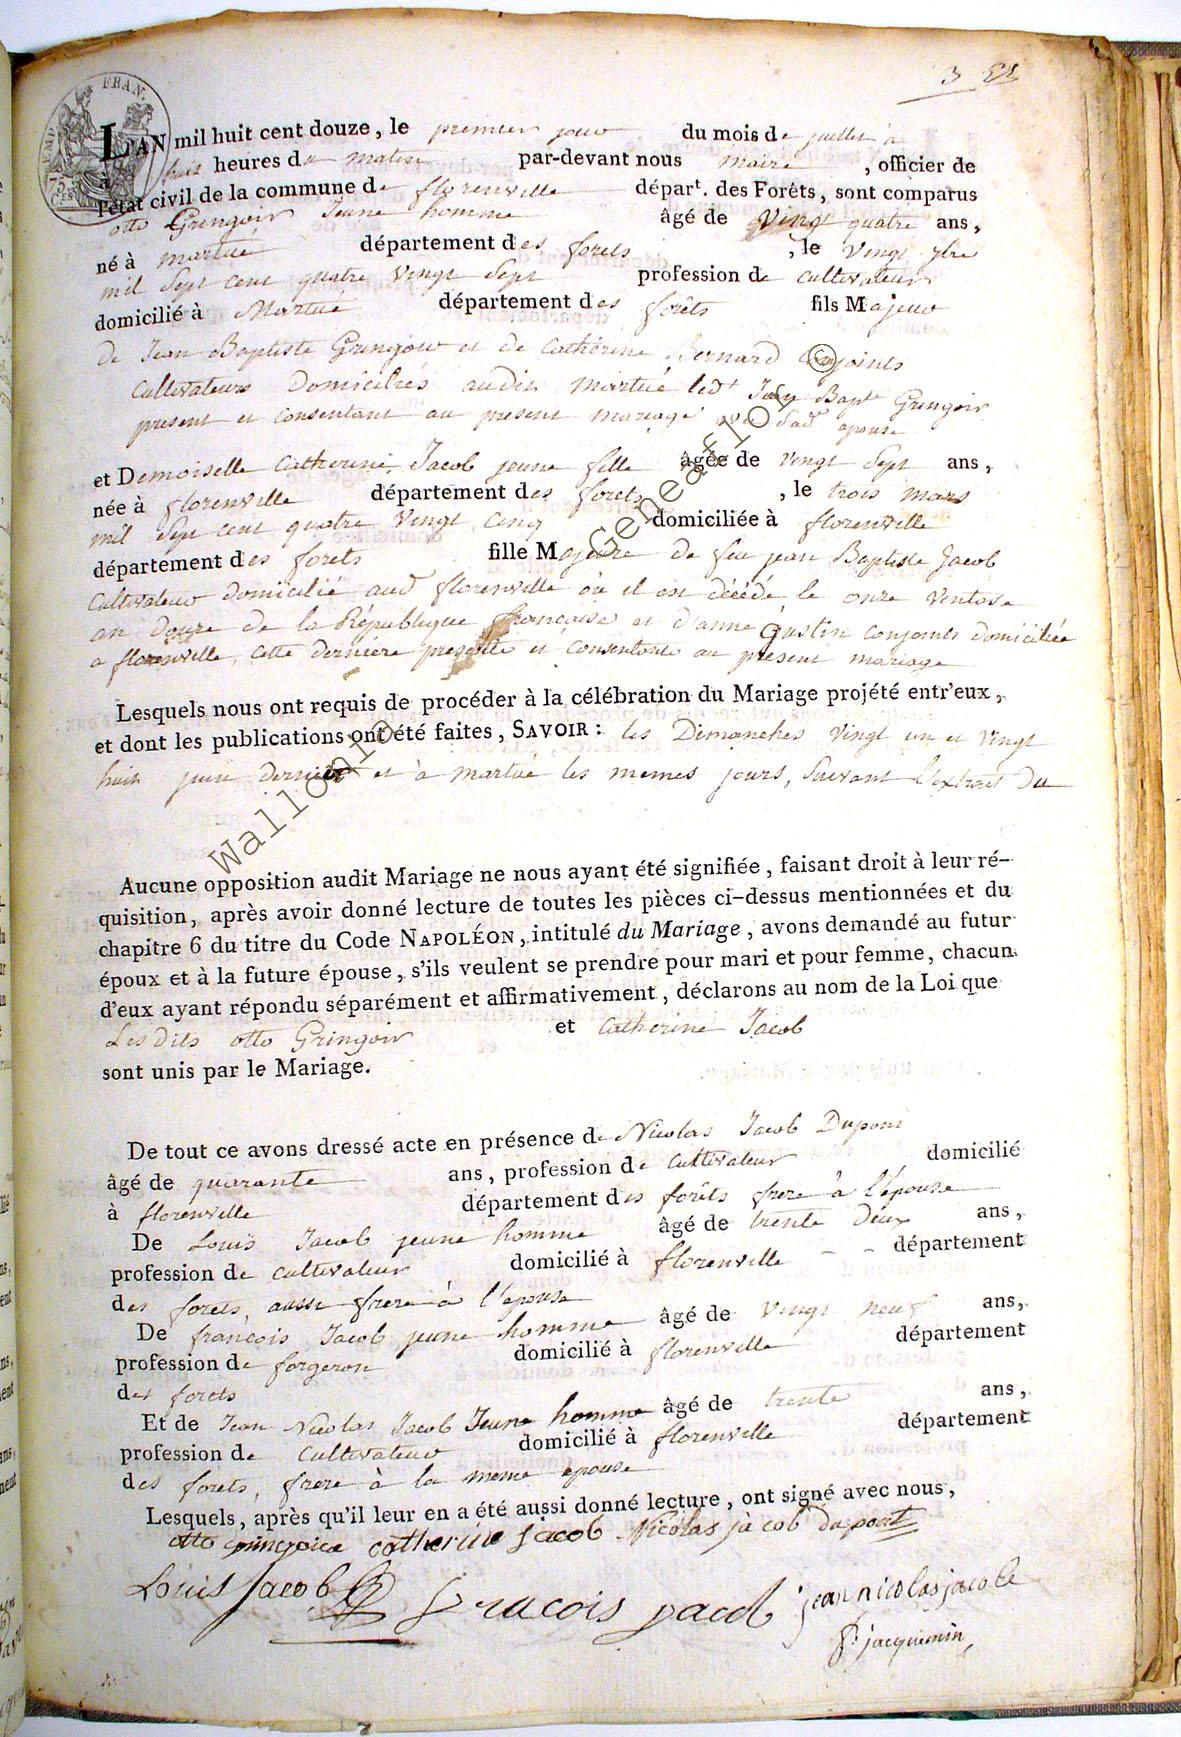 3
L'AN mil huit cent douze, le premier jour du mois de juillet à
à huit heures du matin par-devant nous maire, officier de
l'état civil de la commune de florenville départ. des Forêts, sont comparus
otto Gringoir Jeune homme âgé de Vingt quatre ans,
né à martué département des forets, le Vingt 7bre
mil Sept cent quatre vingt Sept profession de cultivateur
domicilié à Martué département des forêts fils Majeur
de Jean Baptiste Gringoir et de Cathérine Bernard conjoints
Cultivateurs Domiciliés audit martué led.t Jean Bapte Gringoir
present et consentant au present mariage avec sad. epouse
et Demoiselle Catherine Jacob jeune fille âgée de vingt Sept ans,
née à florenville département des forets, le trois mars
mil Sept cent quatre Vingt Cinq domiciliée à florenville
département des forets fille Majeure de feu jean Baptiste Jacob
Cultivateur domicilié aud. florenville où il est décédé le onze Ventose
an douze de la République française et d'anne Gustin conjoints domiciliée
a florenville, cette derniere presente et consentante au présent mariage
Lesquels nous ont requis de procéder à la célébration du Mariage projété entr'eux,
et dont les publications ont été faites, SAVOIR : les Dimanches Vingt un et Vingt
huit juin dernier et à martué les memes jours, Suivant l'extrait du
Aucune opposition audit Mariage ne nous ayant été signifiée, faisant droit à leur ré-
quisition, après avoir donné lecture de toutes les pièces ci-dessus mentionnées et du
chapitre 6 du titre du Code NAPOLÉON, intitulé du Mariage, avons demandé au futur
époux et à la future épouse, s'ils veulent se prendre pour mari et pour femme, chacun
d'eux ayant répondu séparément et affirmativement, déclarons au nom de la Loi que
Les dits otto Gringoir et Catherine Jacob
sont unis par le Mariage.
De tout ce avons dressé acte en présence de Nicolas Jacob Dupont
âgé de quarante ans, profession de Cultivateur domicilié
à florenville département des forêts frere à l'épouse
De Louis Jacob jeune homme âgé de trente Deux ans,
profession de cultivateur domicilié à florenville département
des forets, aussi frere à l'epouse
De françois Jacob jeune homme âgé de Vingt neuf ans,
profession de forgeron domicilié à florenville département
des forets
Et de Jean Nicolas Jacob Jeune homme âgé de trente ans,
profession de Cultivateur domicilié à florenville département
des forets, frere à la meme epouse
Lesquels, après qu'il leur en a été aussi donné lecture, ont signé avec nous,
otto gringoire catherine jacob Nicolas jacob dupont
Louis Jacob fracois jacob jean nicolas jacob
jacquemin
Wallonie Geneaflor ©